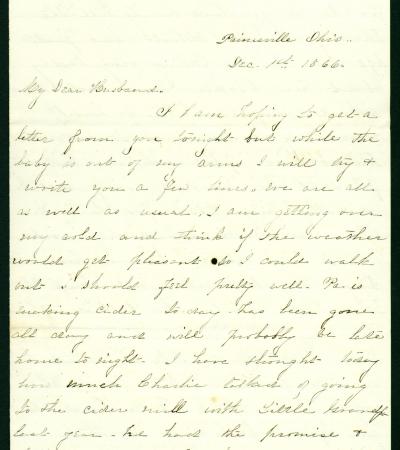 Painesville Ohio..
Dec. 1st 1866.
My Dear Husband.
I am hoping to get a
letter from you tonight but while the
baby is out of my arms I will try &
write you a few lines. We are all
as well as usual. I am getting over
my cold and think if the weather
would get pleasant so I could walk
out I should feel pretty well. Pa is
making cider to day has been gone
all day and will probably be late
home to night. I have thought today
how much Charlie talked of going
to the cider mill with Little Grandpa
last year. he had the promise &